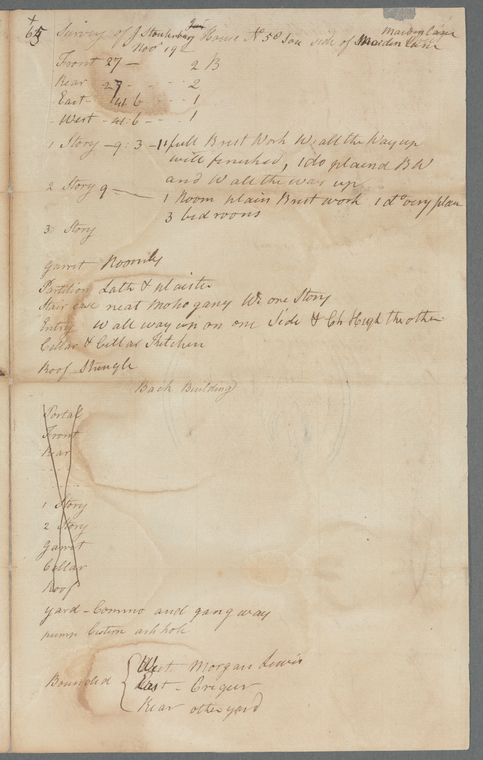 +
65
Survey of J Stoutenburg Jun House No 50 Sou side of Maiden Lane
Maiden Lane
Novr 19
Front 27 - 2 B
Rear 27 - - - - 2
East - 41. 6 - - - 1
West - 41: 6 - - 1
1 Story - 9: 3 - 1 full Brest Work W: all the Way up
well finished, 1 do plaind BW
and W all the way up
2 Story 9 - 1 Room plain Brest work 1 do very plain
3 bed rooms
3 Story
garret Rooms
Partition Lath & plaister
Stair case neat mohogany W: one Story
Entry W all way up on one Side & Ch High the other
Cellar & Cellar Kitchen
Roof Shingle
Back Building
Portal
Front
Rear
1 Story
2 Story
Garret
Cellar
Roof
yard - Commo and gang way
pump Cistern ash hole
Bounded
West Morgan Lewis
East - Creguer
Rear other yard